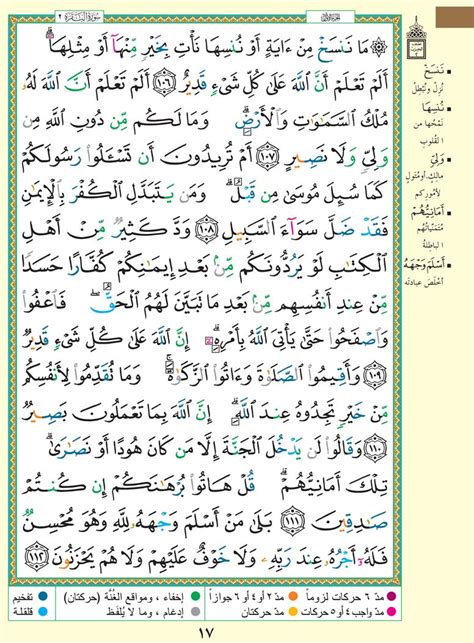 الجزء الأول
سُورَةُ البَقَرَة ٢
۞ مَا نَنسَخْ مِنْ ءَايَةٍ أَوْ نُنسِهَا نَأْتِ بِخَيْرٍ مِّنْهَآ أَوْ مِثْلِهَآ ۗ
أَلَمْ تَعْلَمْ أَنَّ ٱللَّهَ عَلَىٰ كُلِّ شَىْءٍ قَدِيرٌ ١٠٦ أَلَمْ تَعْلَمْ أَنَّ ٱللَّهَ لَهُۥ
مُلْكُ ٱلسَّمَٰوَٰتِ وَٱلْأَرْضِ ۗ وَمَا لَكُم مِّن دُونِ ٱللَّهِ مِن
وَلِىٍّ وَلَا نَصِيرٍ ١٠٧ أَمْ تُرِيدُونَ أَن تَسْـَٔلُوا۟ رَسُولَكُمْ
كَمَا سُئِلَ مُوسَىٰ مِن قَبْلُ ۗ وَمَن يَتَبَدَّلِ ٱلْكُفْرَ بِٱلْإِيمَٰنِ
فَقَدْ ضَلَّ سَوَآءَ ٱلسَّبِيلِ ١٠٨ وَدَّ كَثِيرٌ مِّنْ أَهْلِ
ٱلْكِتَٰبِ لَوْ يَرُدُّونَكُم مِّنۢ بَعْدِ إِيمَٰنِكُمْ كُفَّارًا حَسَدًا
مِّنْ عِندِ أَنفُسِهِم مِّنۢ بَعْدِ مَا تَبَيَّنَ لَهُمُ ٱلْحَقُّ ۖ فَٱعْفُوا۟
وَٱصْفَحُوا۟ حَتَّىٰ يَأْتِىَ ٱللَّهُ بِأَمْرِهِۦٓ ۗ إِنَّ ٱللَّهَ عَلَىٰ كُلِّ شَىْءٍ قَدِيرٌ
١٠٩ وَأَقِيمُوا۟ ٱلصَّلَوٰةَ وَءَاتُوا۟ ٱلزَّكَوٰةَ ۚ وَمَا تُقَدِّمُوا۟ لِأَنفُسِكُم
مِّنْ خَيْرٍ تَجِدُوهُ عِندَ ٱللَّهِ ۗ إِنَّ ٱللَّهَ بِمَا تَعْمَلُونَ بَصِيرٌ
١١٠ وَقَالُوا۟ لَن يَدْخُلَ ٱلْجَنَّةَ إِلَّا مَن كَانَ هُودًا أَوْ نَصَٰرَىٰ ۗ
تِلْكَ أَمَانِيُّهُمْ ۗ قُلْ هَاتُوا۟ بُرْهَٰنَكُمْ إِن كُنتُمْ
صَٰدِقِينَ ١١١ بَلَىٰ مَنْ أَسْلَمَ وَجْهَهُۥ لِلَّهِ وَهُوَ مُحْسِنٌ
فَلَهُۥٓ أَجْرُهُۥ عِندَ رَبِّهِۦ وَلَا خَوْفٌ عَلَيْهِمْ وَلَا هُمْ يَحْزَنُونَ ١١٢
▪ نَنسَخْ
نُزِلْ ونُبْطِلْ
▪ نُنسِهَا
نَمْحُها من
القلوب
▪ وَلِيٍّ
مالكٍ. أو متولٍ
لأموركم
▪ أَمَانِيُّهُمْ
مُتَمَنَّيَاتُهُم
الباطلةُ
▪ أَسْلَمَ وَجْهَهُ
أخلص عبادته
مدّ ٦ حركات لزوماً
مدّ ٢ أو ٤ أو ٦ جوازاً
إخفاء، ومواقع الغُنَّة (حركتان)
تفخيم
مدّ واجب ٤ أو ٥ حركات
مدّ حركتان
إدغام، وما لا يُلفَظ
قلقلة
١٧